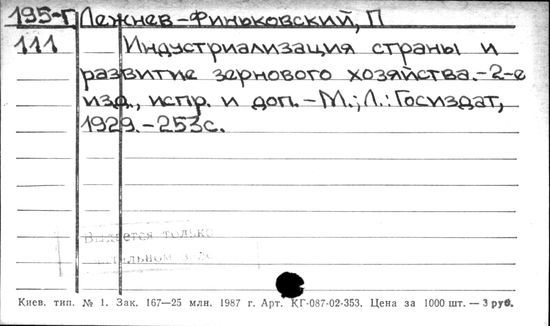 195-Г Лежнев-Финьковский, П
111 Индустриализация страны и
развитие зернового хозяйства.-2-е
изд., испр. и доп.-М.;Л.:Госиздат,
1929.-253с.
только
Киев. тип. № 1. Зак. 167—25 млн. 1987 г. Арт. КГ-087-02-353. Цена за 1000 шт. — 3 руб.